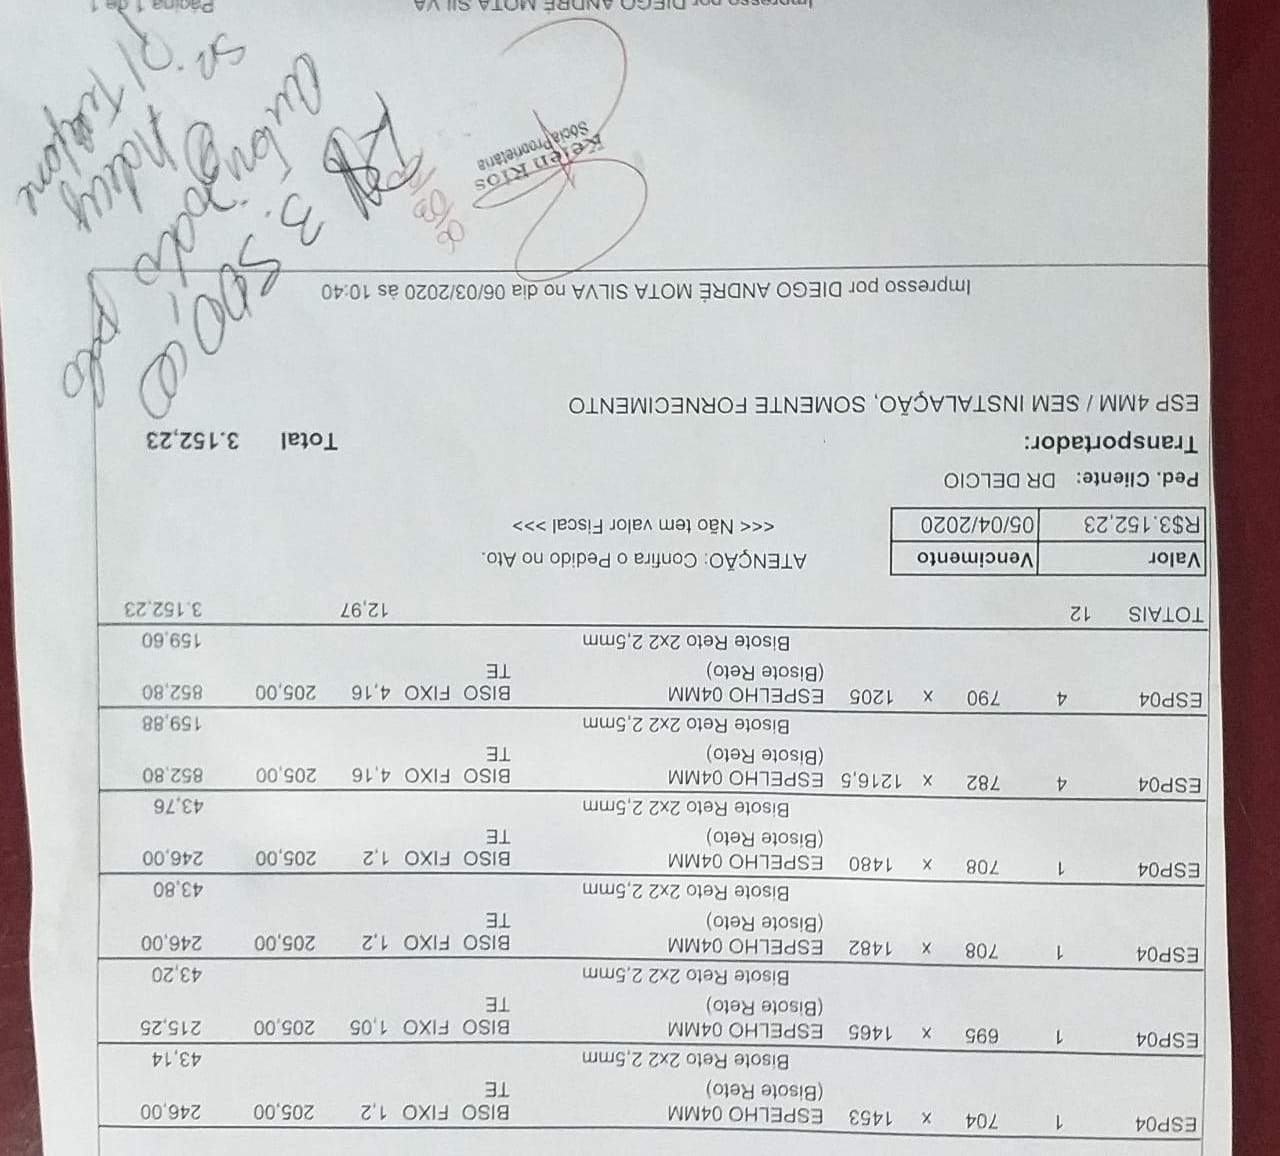 ESP04 1 704 x 1453 ESPELHO 04MM BISO FIXO 1,2 205,00 246,00
(Bisote Reto) TE
Bisote Reto 2x2 2,5mm 43,14
ESP04 1 695 x 1465 ESPELHO 04MM BISO FIXO 1,05 205,00 215,25
(Bisote Reto) TE
Bisote Reto 2x2 2,5mm 43,20
ESP04 1 708 x 1482 ESPELHO 04MM BISO FIXO 1,2 205,00 246,00
(Bisote Reto) TE
Bisote Reto 2x2 2,5mm 43,80
ESP04 1 708 x 1480 ESPELHO 04MM BISO FIXO 1,2 205,00 246,00
(Bisote Reto) TE
Bisote Reto 2x2 2,5mm 43,76
ESP04 4 782 x 1216,5 ESPELHO 04MM BISO FIXO 4,16 205,00 852,80
(Bisote Reto) TE
Bisote Reto 2x2 2,5mm 159,88
ESP04 4 790 x 1205 ESPELHO 04MM BISO FIXO 4,16 205,00 852,80
(Bisote Reto) TE
Bisote Reto 2x2 2,5mm 159,60
TOTAIS 12 12,97 3.152,23
Valor Vencimento ATENÇÃO: Confira o Pedido no Ato.
R$3.152,23 05/04/2020 <<< Não tem valor Fiscal >>>
Ped. Cliente: DR DELCIO
Transportador: Total 3.152,23
ESP 4MM / SEM INSTALAÇÃO, SOMENTE FORNECIMENTO
Impresso por DIEGO ANDRÉ MOTA SILVA no dia 06/03/2020 às 10:40
Kelen Rios
Sócia Proprietária
Impresso por DIEGO ANDRÉ MOTA SILVA Página 1 de 1